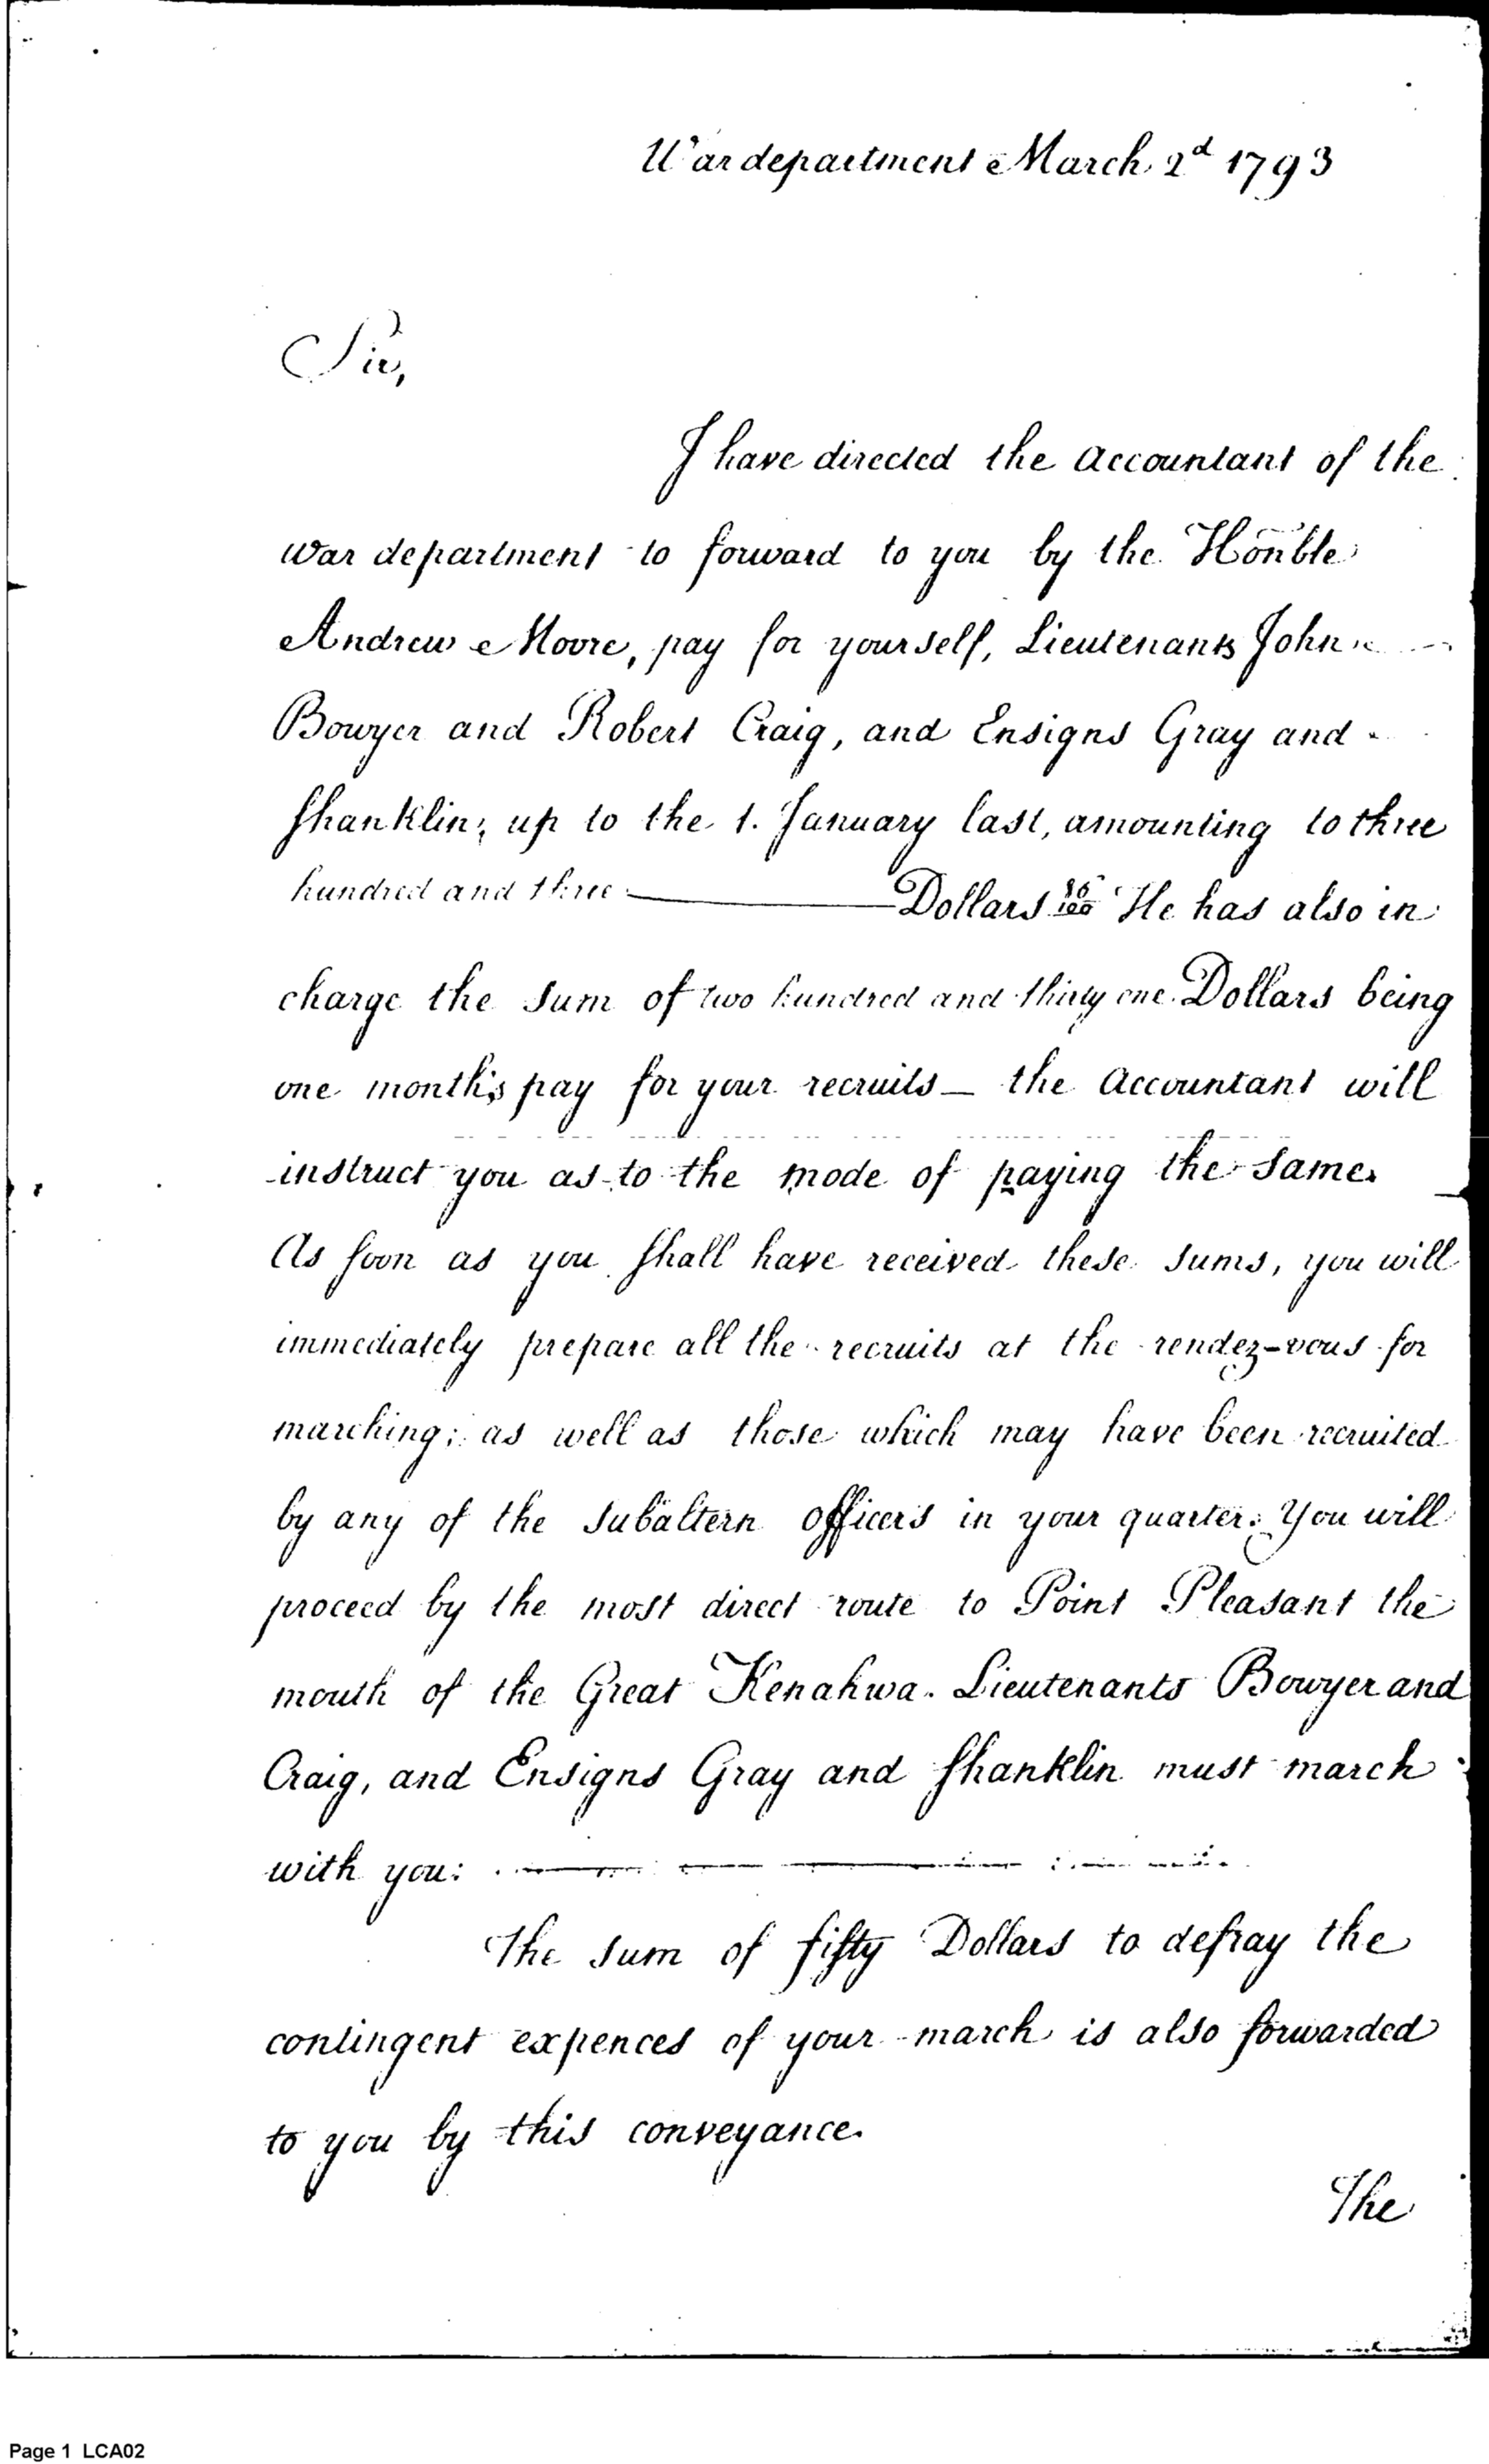 War department March 2d 1793
Sir,
I have directed the Accountant of the
war department to forward to you by the Honble
Andrew Moore, pay for yourself, Lieutenants John
Bowyer and Robert Craig, and Ensigns Gray and
Shanklin; up to the 1. January last, amounting to three
hundred and three ——— Dollars /100 He has also in
charge the Sum of two hundred and thirty one Dollars being
one month's pay for your recruits — the Accountant will
instruct you as to the mode of paying the Same.
As soon as you shall have received these Sums, you will
immediately prepare all the recruits at the rendez-vous for
marching; as well as those which may have been recruited
by any of the Subaltern officers in your quarter. You will
proceed by the most direct route to Point Pleasant the
mouth of the Great Kenahwa. Lieutenants Bowyer and
Craig, and Ensigns Gray and Shanklin must march
with you:
The Sum of fifty Dollars to defray the
contingent expences of your march is also forwarded
to you by this conveyance.
The
Page 1 LCA02